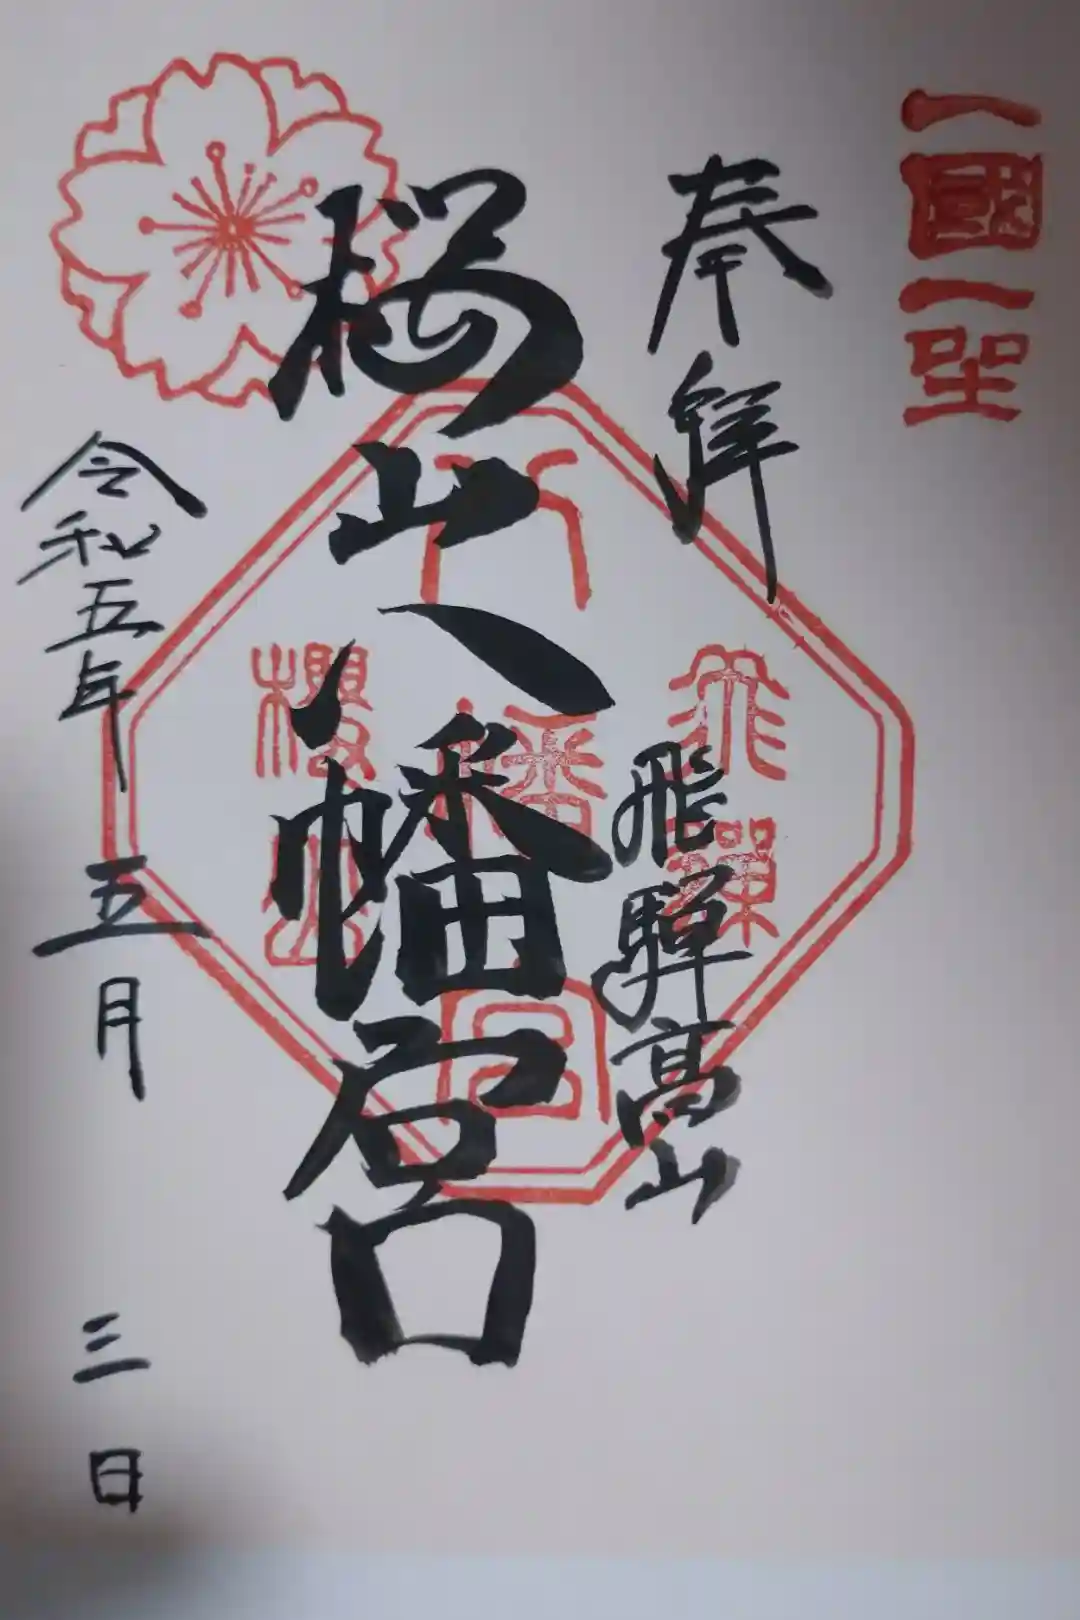 一國一聖
奉拝
飛騨高山
飛騨
八幡宮
櫻山
桜山八幡宮
令和五年 五月 三日